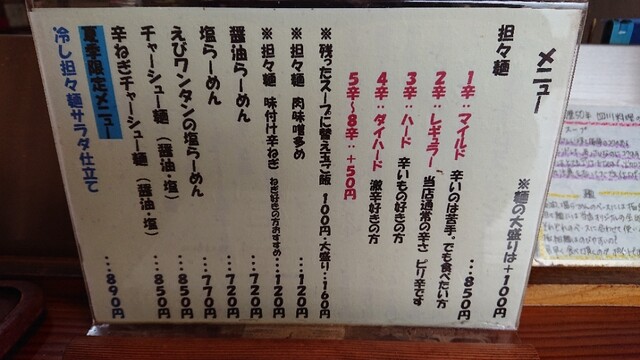 メニュー ※麺の大盛りは+100円
担々麺 …850円
1辛:マイルド 辛いのは苦手。でも食べたい方
2辛:レギュラー 当店通常の辛さ ピリ辛です
3辛:ハード 辛いもの好きの方
4辛:ダイハード 激辛好きの方
5辛～8辛:+50円
※残ったスープに替え玉ご飯 100円・大盛り…160円
※担々麺 肉味噌多め …120円
※担々麺 味付け辛ねぎ ねぎ好きの方おすすめ…120円
醤油らーめん …720円
塩らーめん …720円
えびワンタンの塩らーめん …770円
チャーシュー麺(醤油・塩) …850円
辛ねぎチャーシュー麺(醤油・塩) …850円
夏季限定メニュー
冷し担々麺サラダ仕立て …890円